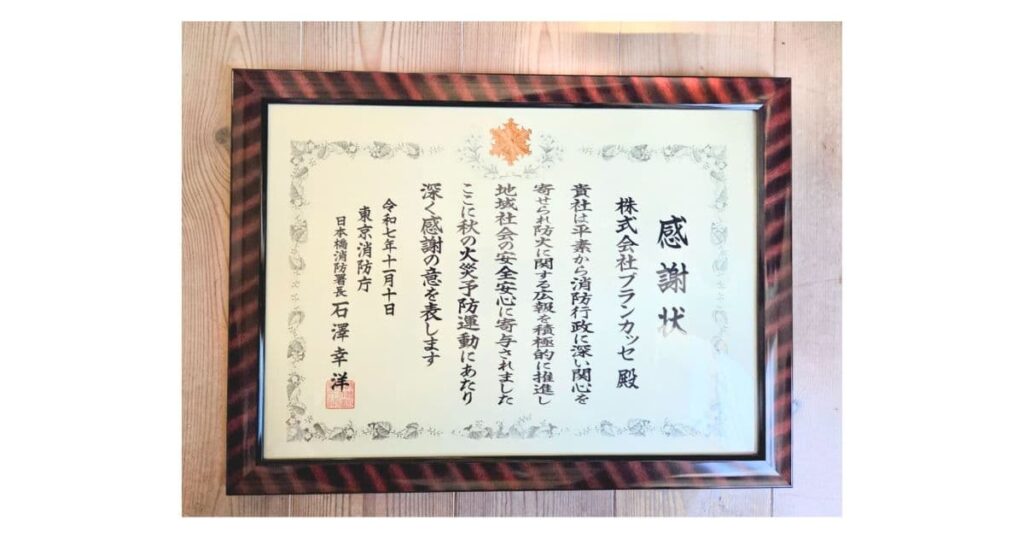 感謝状
株式会社ブランカッセ 殿
貴社は平素から消防行政に深い関心を
寄せられ防火に関する広報を積極的に推進し
地域社会の安全安心に寄与されました
ここに秋の火災予防運動にあたり
深く感謝の意を表します
令和七年十一月十日
東京消防庁
日本橋消防署長 石澤幸洋